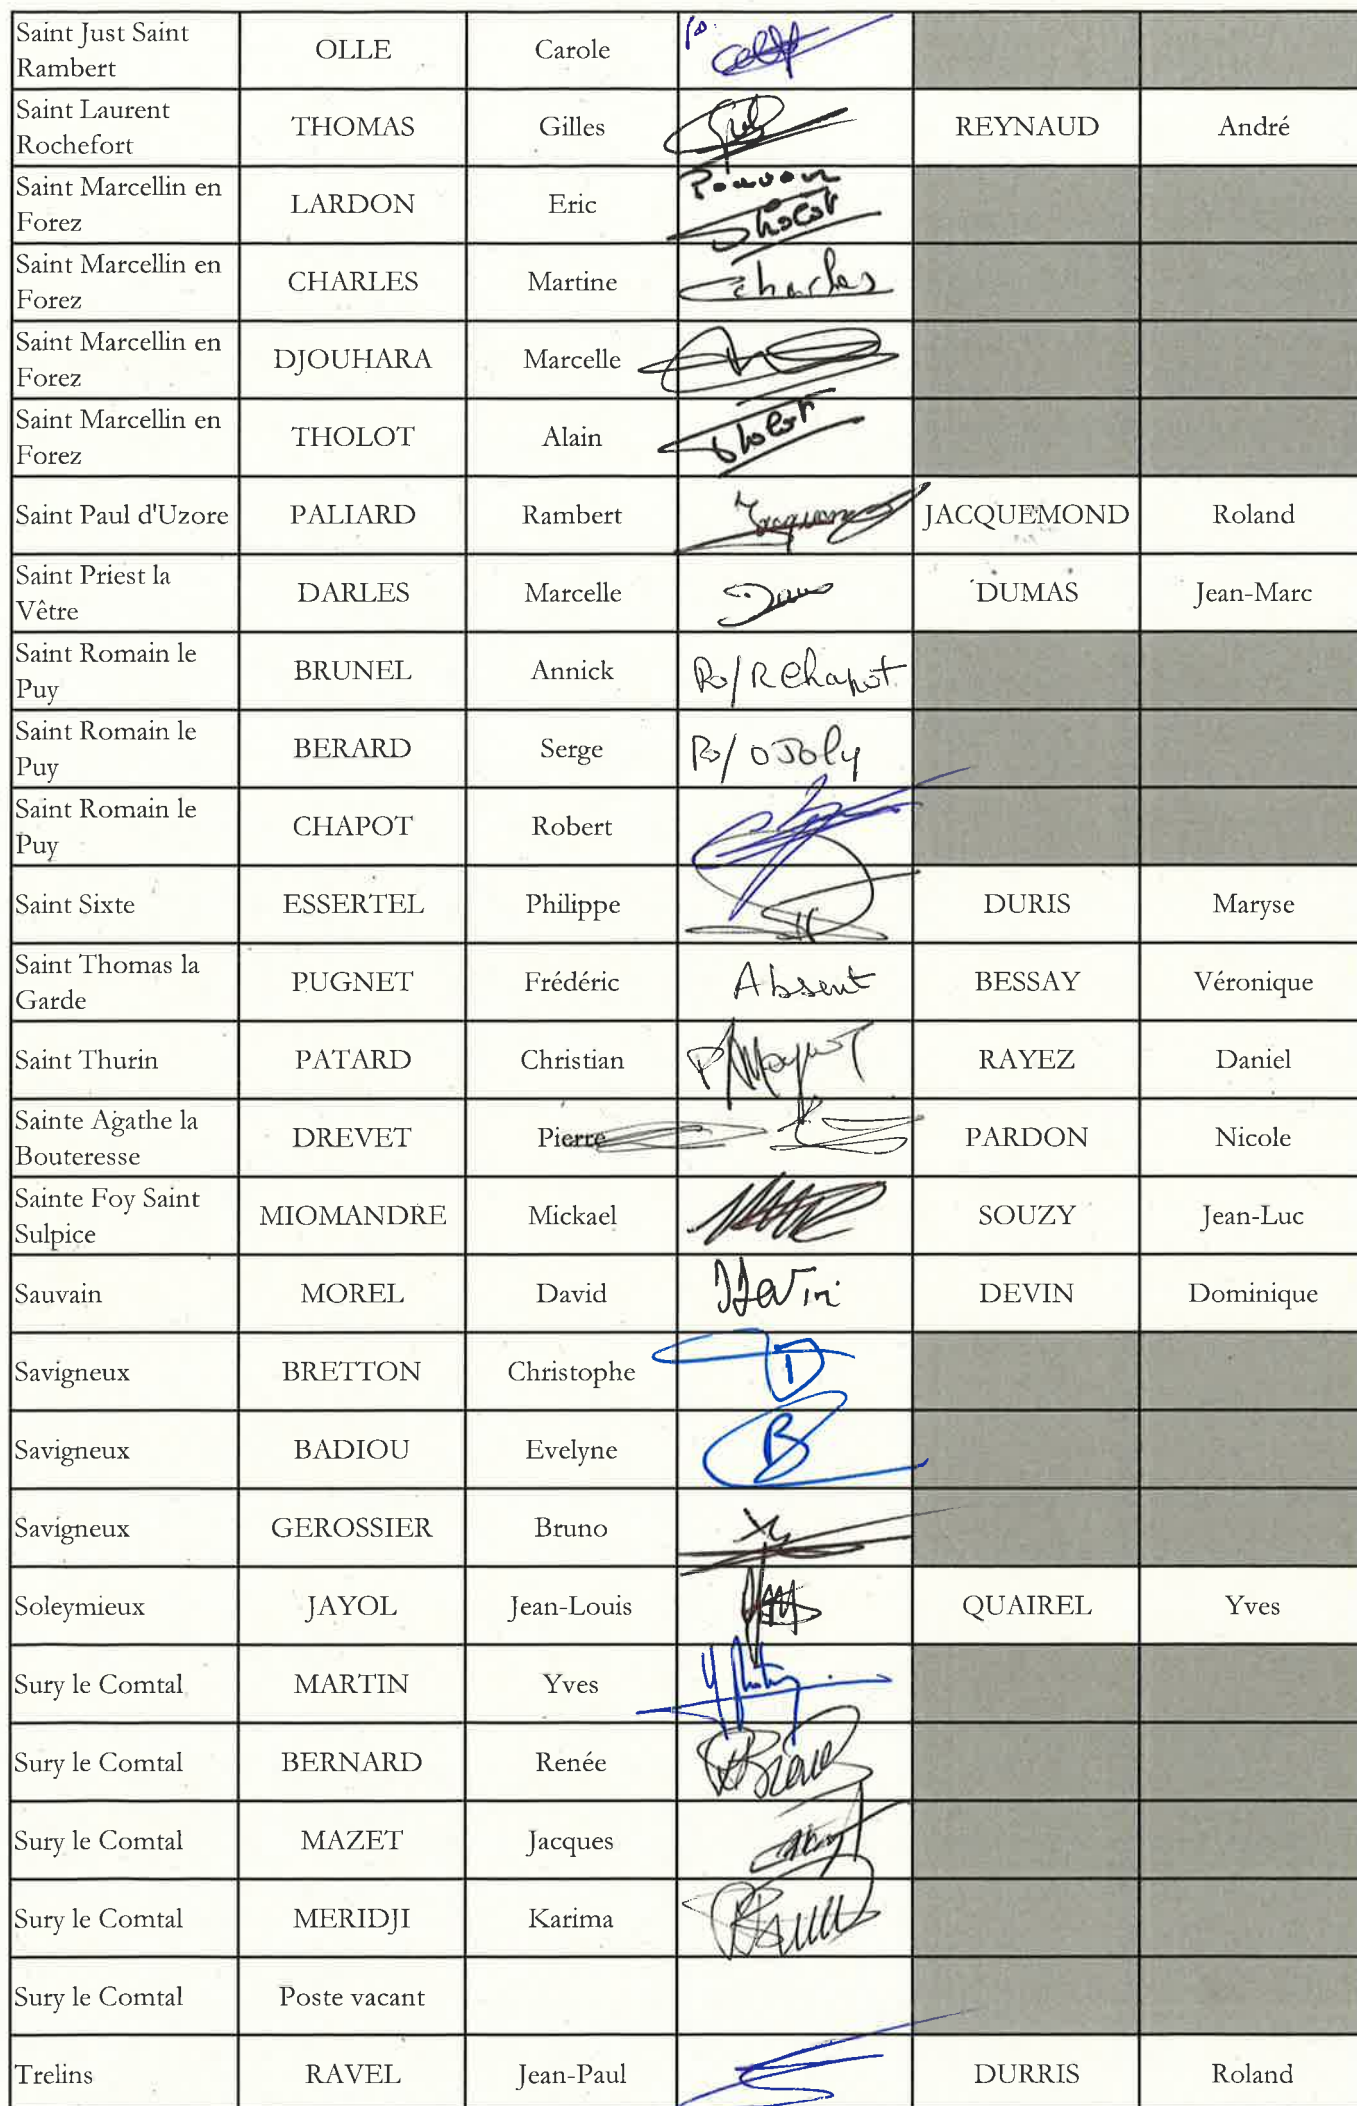 Saint Just Saint
Rambert
OLLE
Carole
Saint Laurent
Rochefort
THOMAS
Gilles
REYNAUD
André
Saint Marcellin en
Forez
LARDON
Eric
Pouvoir
Tholot
Saint Marcellin en
Forez
CHARLES
Martine
Charles
Saint Marcellin en
Forez
DJOUHARA
Marcelle
Saint Marcellin en
Forez
THOLOT
Alain
Tholot
Saint Paul d'Uzore
PALIARD
Rambert
JACQUEMOND
Roland
Saint Priest la
Vêtre
DARLES
Marcelle
DUMAS
Jean-Marc
Saint Romain le
Puy
BRUNEL
Annick
Po/ R Chapot
Saint Romain le
Puy
BERARD
Serge
Po/ O Joly
Saint Romain le
Puy
CHAPOT
Robert
Saint Sixte
ESSERTEL
Philippe
DURIS
Maryse
Saint Thomas la
Garde
PUGNET
Frédéric
Absent
BESSAY
Véronique
Saint Thurin
PATARD
Christian
RAYEZ
Daniel
Sainte Agathe la
Bouteresse
DREVET
Pierre
PARDON
Nicole
Sainte Foy Saint
Sulpice
MIOMANDRE
Mickael
SOUZY
Jean-Luc
Sauvain
MOREL
David
DEVIN
Dominique
Savigneux
BRETTON
Christophe
Savigneux
BADIOU
Evelyne
B
Savigneux
GEROSSIER
Bruno
Soleymieux
JAYOL
Jean-Louis
QUAIREL
Yves
Sury le Comtal
MARTIN
Yves
Sury le Comtal
BERNARD
Renée
Sury le Comtal
MAZET
Jacques
Sury le Comtal
MERIDJI
Karima
Sury le Comtal
Poste vacant
Trelins
RAVEL
Jean-Paul
DURRIS
Roland